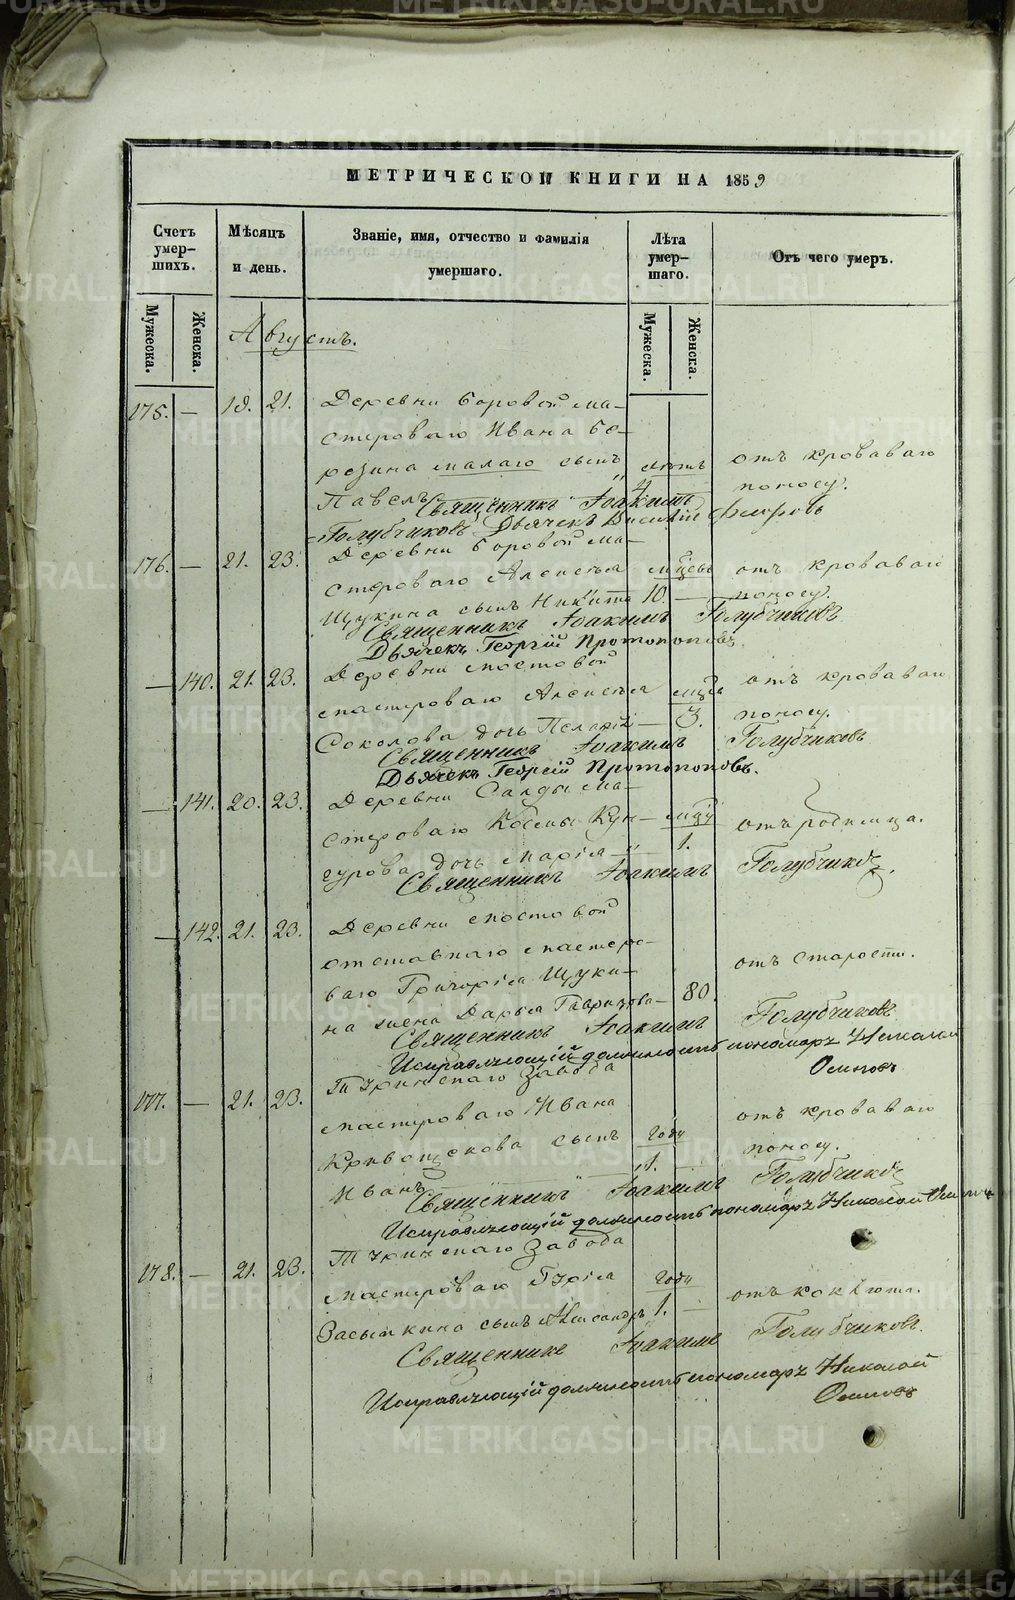 МЕТРИЧЕСКОЙ КНИГИ НА 1859
Счетъ умер-шихъ.
Мужеска.
Женска.
Мѣсяцъ и день.
Званіе, имя, отчество и фамилія умершаго.
Лѣта умер-шаго.
Мужеска.
Женска.
Отъ чего умеръ.
Августъ.
175. — 19. 21. Деревни Боровой ма-
стероваго Ивана Бе-
резина малаго сынъ лѣтъ отъ кроваваго
Павелъ 4 поносу.
Священникъ Іоакимъ
Голубчиковъ Дьячекъ Василій Флоровъ
176. — 21. 23. Деревни Боровой ма-
стероваго Алексѣя мѣсяцъ отъ кроваваго
Щукина сынъ Никита 10. — поносу.
Священникъ Іоакимъ Голубчиковъ
Дьячекъ Георгій Протопоповъ.
— 140. 21. 23. Деревни Мостовой
мастероваго Алексѣя отъ кроваваго
Соколова дочь — 3. поносу.
Священникъ Іоакимъ Голубчиковъ
Дьячекъ Георгій Протопоповъ.
— 141. 20. 23. Деревни Салды ма-
строваго Космы Кун- отъ родимца.
гурова дочь Марія — 1.
Священникъ Іоакимъ Голубчиковъ.
— 142. 21. 23. Деревни Мостовой
отставнаго мастеро- отъ старости.
ваго Григорія Щуки-
на жена Дарья Гаврилова — 80.
Священникъ Іоакимъ Голубчиковъ
Исправляющій должность пономаря Николай
Осиповъ
177. — 21. 23. Туринскаго Завода
мастероваго Ивана отъ кроваваго
Кривощекова сынъ Году поносу.
Иванъ 1.
Священникъ Іоакимъ Голубчиковъ
Исправляющій должность пономаря Николай Осиповъ
178. — 21. 23. Туринскаго Завода
мастероваго Гурія Году
Засыпкина сынъ Александръ 1. —
Священникъ Іоакимъ Голубчиковъ.
Исправляющій должность пономаря Николай
Осиповъ
METRIKI.GASO-URAL.RU